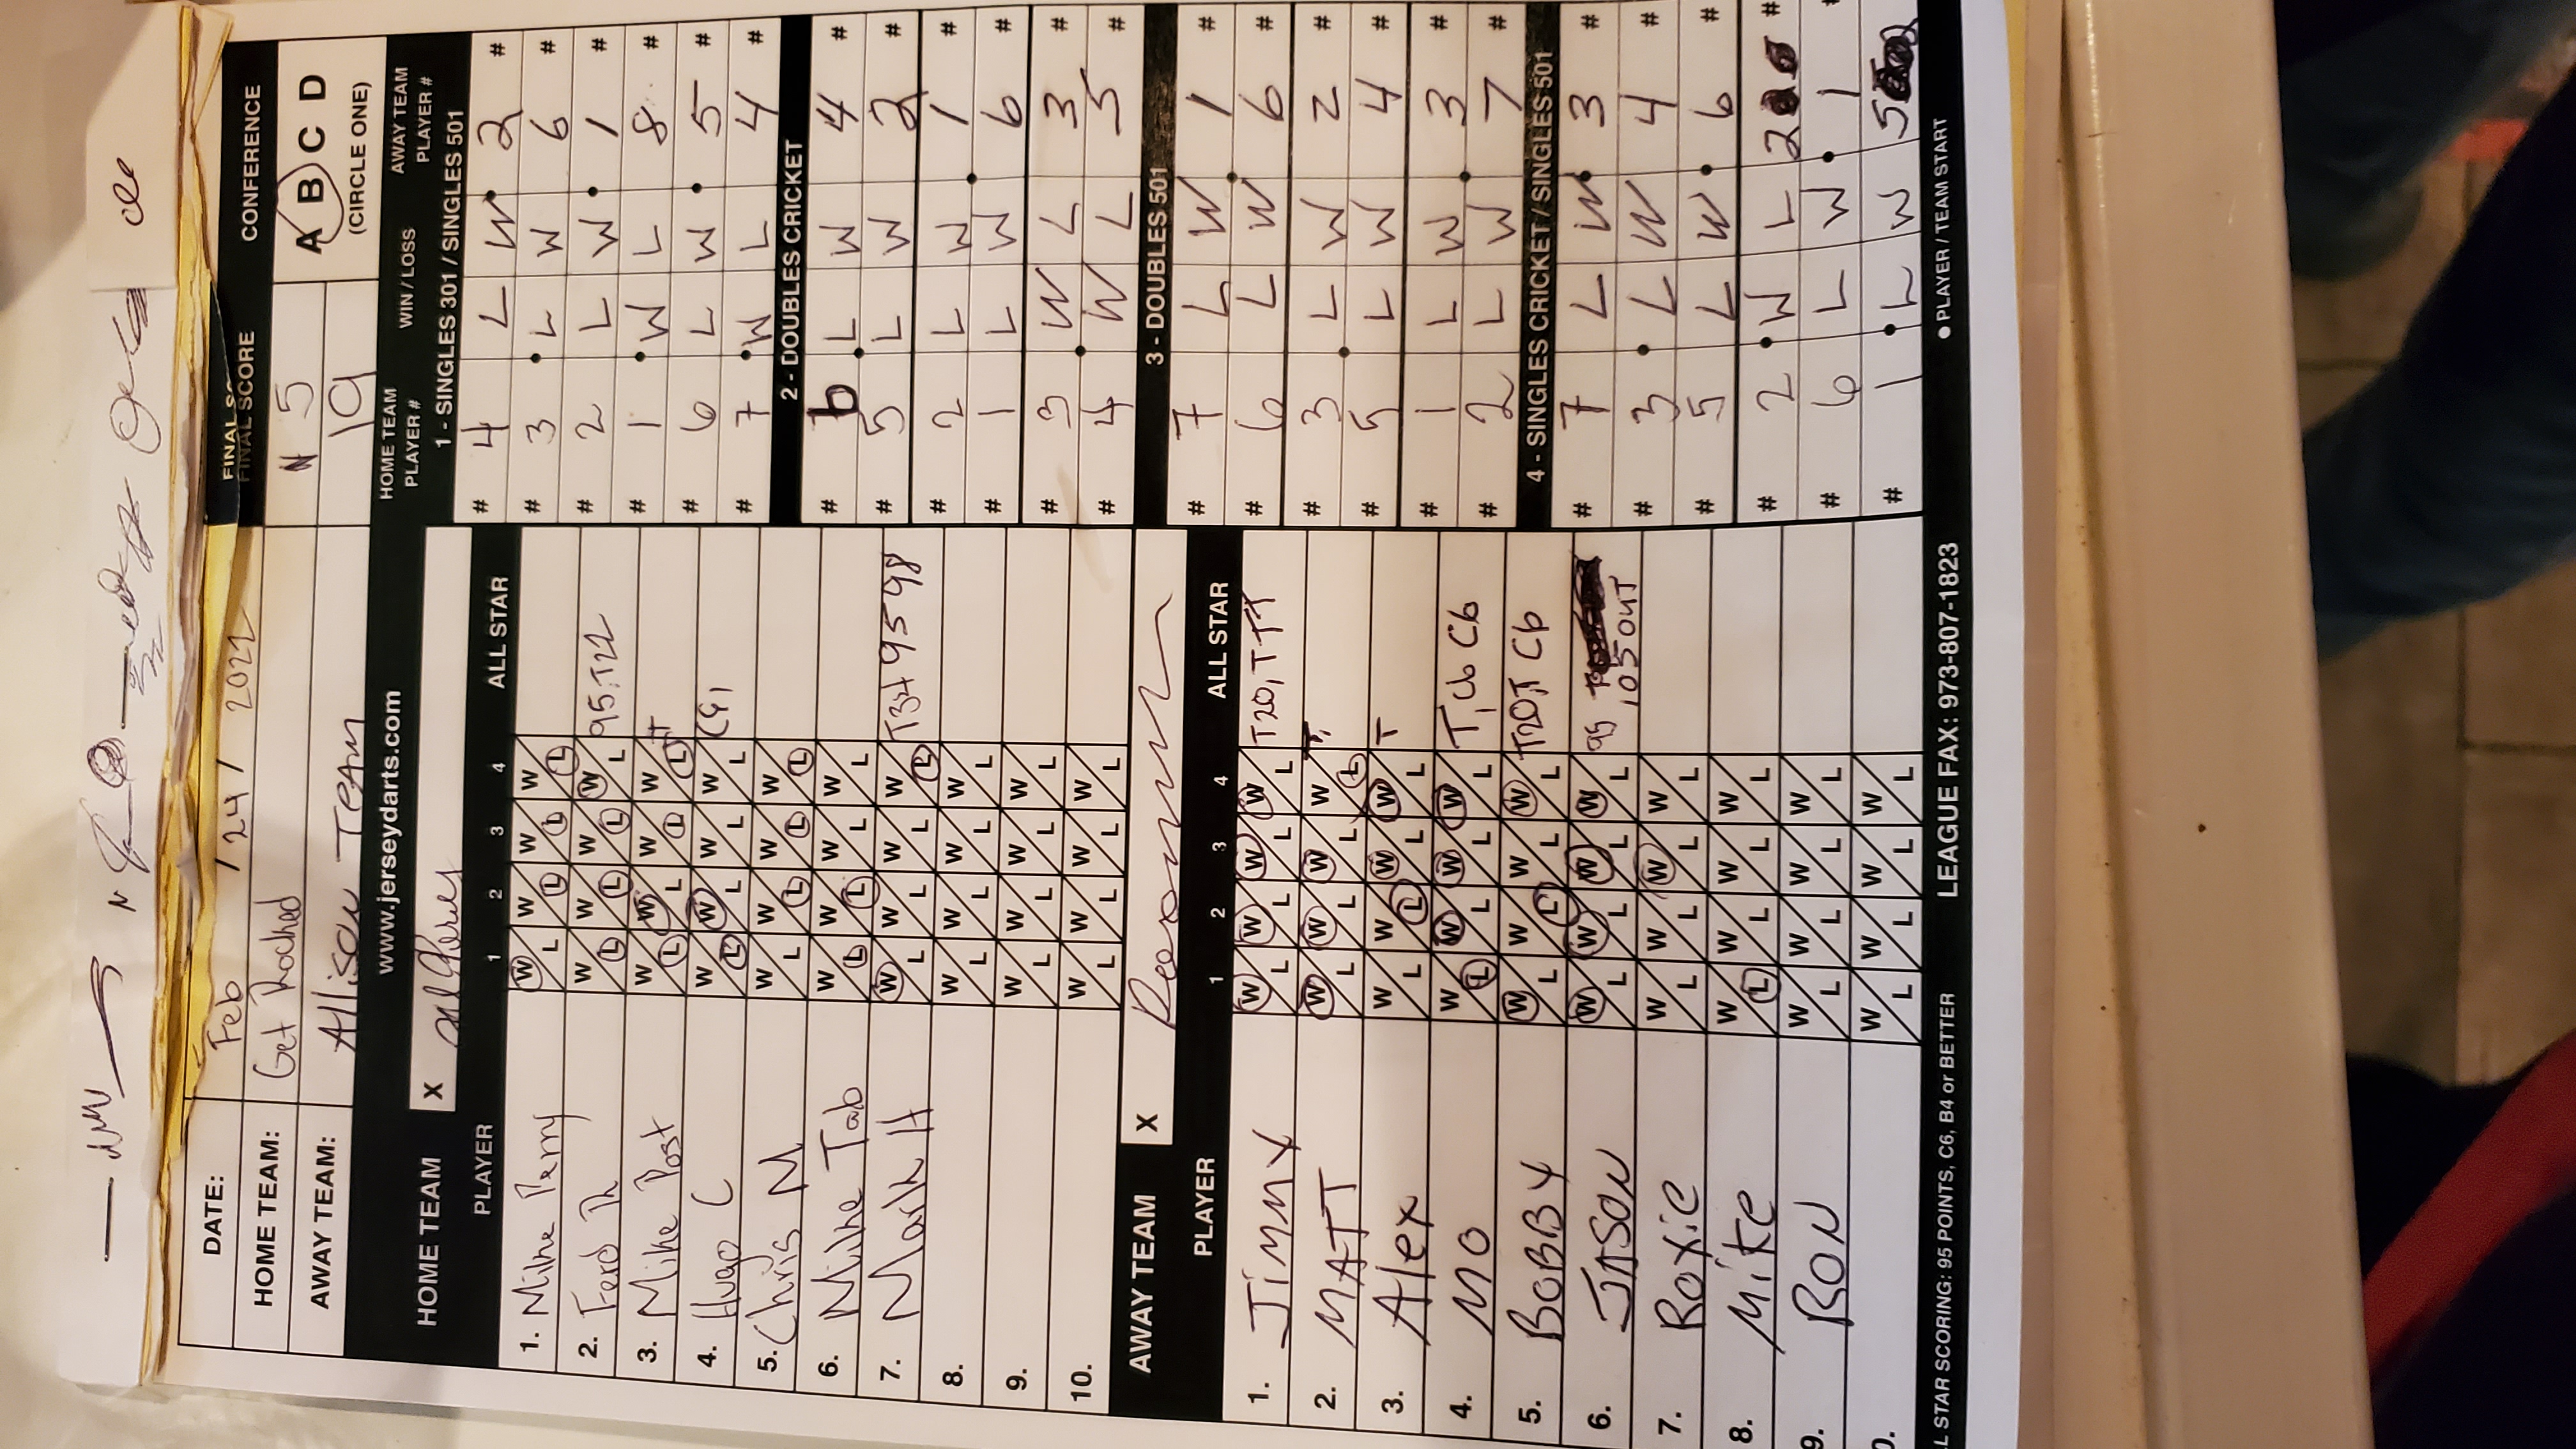 DATE: Feb / 24 / 2022
FINAL SCORE
CONFERENCE
HOME TEAM: Get Roached 5
A B C D
AWAY TEAM: Allison Team 19
(CIRCLE ONE)
www.jerseydarts.com
HOME TEAM X
PLAYER 1 2 3 4 ALL STAR
1. Mike Perry W L W L W L W L
2. Ferd R W L W L W L W L 95, T22
3. Mike Post W L W L W L W L T
4. Hugo C W L W L W L W L
5. Chris M W L W L W L W L
6. Mike Tab W L W L W L W L
7. Mark H W L W L W L W L 95 98
8. W L W L W L W L
9. W L W L W L W L
10. W L W L W L W L
AWAY TEAM X
PLAYER 1 2 3 4 ALL STAR
1. Jimmy W L W L W L W L T20, T T
2. MATT W L W L W L W L T,
3. Alex W L W L W L W L T
4. MO W L W L W L W L T, Cb Cb
5. BOBBY W L W L W L W L T20, T Cb
6. JASON W L W L W L W L 95 105 OUT
7. Roxie W L W L W L W L
8. Mike W L W L W L W L
9. RON W L W L W L W L
0. W L W L W L W L
HOME TEAM PLAYER # WIN / LOSS AWAY TEAM PLAYER #
1 - SINGLES 301 / SINGLES 501
# 4 L W 2 #
# 3 L W 6 #
# 2 L W 1 #
# 1 W L 8 #
# 6 L W 5 #
# 7 W L 4 #
2 - DOUBLES CRICKET
# 6 L W 4 #
# 5 L W 2 #
# 2 L W 1 #
# 1 L W 6 #
# 3 W L 3 #
# 4 W L 5 #
3 - DOUBLES 501
# 7 L W 1 #
# 6 L W 6 #
# 3 L W 2 #
# 5 L W 4 #
# 1 L W 3 #
# 2 L W 7 #
4 - SINGLES CRICKET / SINGLES 501
# 7 L W 3 #
# 3 L W 4 #
# 5 L W 6 #
# 2 W L 2 #
# 6 L W 1
# 1 L W 5
L STAR SCORING: 95 POINTS, C6, B4 or BETTER
LEAGUE FAX: 973-807-1823
● PLAYER / TEAM START